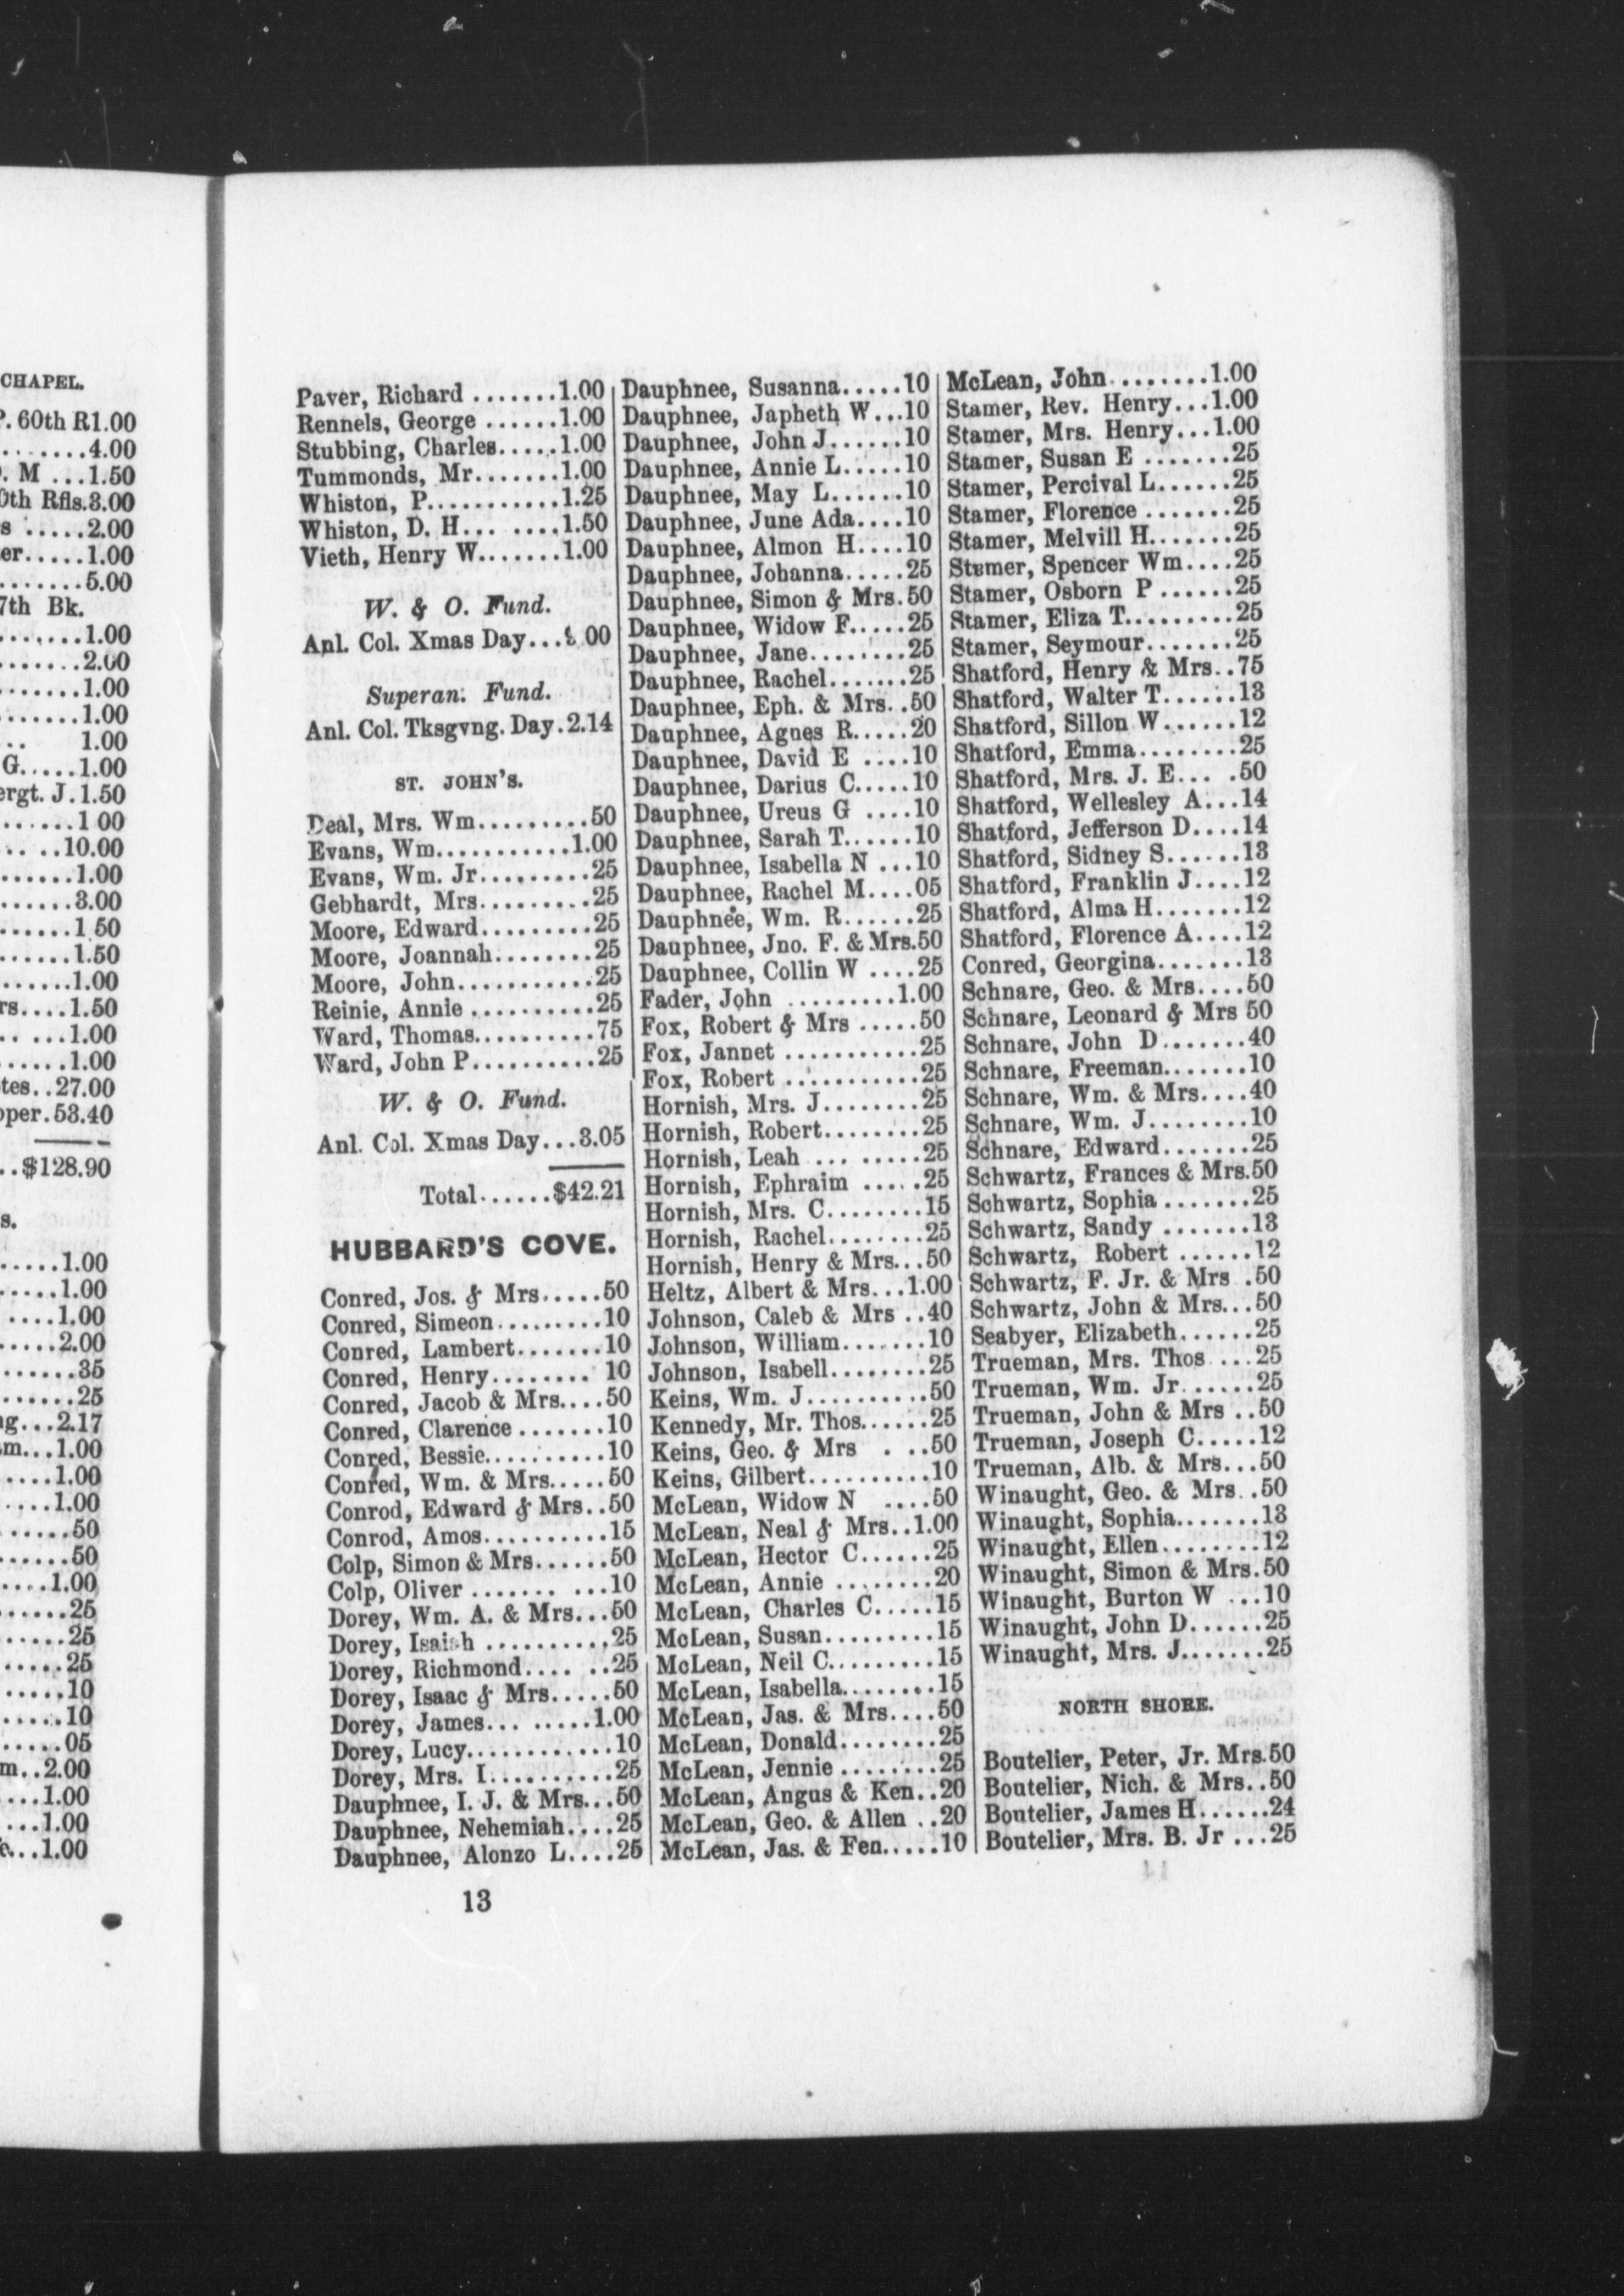 CHAPEL.
P. 60th R1.00
........4.00
. M ...1.50
0th Rfls.3.00
s .....2.00
er.....1.00
.......5.00
7th Bk.
.......1.00
.......2.00
.......1.00
.......1.00
.. 1.00
G.....1.00
ergt. J.1.50
......1 00
.. ..10.00
......1.00
......3.00
......1.50
......1.50
......1.00
rs....1.50
.. ...1.00
......1.00
tes..27.00
pper.53.40
..$128.90
s.
.....1.00
.....1.00
....1.00
.....2.00
......35
......25
ng...2.17
m...1.00
....1.00
....1.00
.....50
.....50
....1.00
......25
......25
......25
.....10
.....10
.....05
m..2.00
...1.00
...1.00
...1.00
Paver, Richard .......1.00
Rennels, George ......1.00
Stubbing, Charles.....1.00
Tummonds, Mr.......1.00
Whiston, P...........1.25
Whiston, D. H... ....1.50
Vieth, Henry W.......1.00
W. & O. Fund.
Anl. Col. Xmas Day... 00
Superan. Fund.
Anl. Col. Tksgvng. Day.2.14
ST. JOHN'S.
Deal, Mrs. Wm.........50
Evans, Wm...........1.00
Evans, Wm. Jr.........25
Gebhardt, Mrs.........25
Moore, Edward.........25
Moore, Joannah........25
Moore, John...........25
Reinie, Annie ..........25
Ward, Thomas..........75
Ward, John P..........25
W. & O. Fund.
Anl. Col. Xmas Day...3.05
Total......$42.21
HUBBARD'S COVE.
Conred, Jos. & Mrs.....50
Conred, Simeon.........10
Conred, Lambert.......10
Conred, Henry........ 10
Conred, Jacob & Mrs....50
Conred, Clarence .......10
Conred, Bessie..........10
Conred, Wm. & Mrs.....50
Conrod, Edward & Mrs..50
Conrod, Amos..........15
Colp, Simon & Mrs......50
Colp, Oliver ....... ...10
Dorey, Wm. A. & Mrs...50
Dorey, Isaiah ..........25
Dorey, Richmond.... ..25
Dorey, Isaac & Mrs.....50
Dorey, James... .....1.00
Dorey, Lucy............10
Dorey, Mrs. I..........25
Dauphnee, I. J. & Mrs...50
Dauphnee, Nehemiah....25
Dauphnee, Alonzo L....25
Dauphnee, Susanna.....10
Dauphnee, Japheth W...10
Dauphnee, John J......10
Dauphnee, Annie L.....10
Dauphnee, May L......10
Dauphnee, June Ada....10
Dauphnee, Almon H....10
Dauphnee, Johanna.....25
Dauphnee, Simon & Mrs.50
Dauphnee, Widow F.....25
Dauphnee, Jane........25
Dauphnee, Rachel.......25
Dauphnee, Eph. & Mrs..50
Dauphnee, Agnes R.....20
Dauphnee, David E ....10
Dauphnee, Darius C.....10
Dauphnee, Ureus G ....10
Dauphnee, Sarah T......10
Dauphnee, Isabella N ...10
Dauphnee, Rachel M....05
Dauphnee, Wm. R......25
Dauphnee, Jno. F. & Mrs.50
Dauphnee, Collin W ....25
Fader, John .........1.00
Fox, Robert & Mrs .....50
Fox, Jannet ............25
Fox, Robert ............25
Hornish, Mrs. J........25
Hornish, Robert........25
Hornish, Leah ... .....25
Hornish, Ephraim .....25
Hornish, Mrs. C........15
Hornish, Rachel........25
Hornish, Henry & Mrs...50
Heltz, Albert & Mrs...1.00
Johnson, Caleb & Mrs ..40
Johnson, William.......10
Johnson, Isabell........25
Keins, Wm. J..........50
Kennedy, Mr. Thos......25
Keins, Geo. & Mrs . ..50
Keins, Gilbert..........10
McLean, Widow N ....50
McLean, Neal & Mrs..1.00
McLean, Hector C......25
McLean, Annie ........20
McLean, Charles C.....15
McLean, Susan.........15
McLean, Neil C.........15
McLean, Isabella........15
McLean, Jas. & Mrs....50
McLean, Donald........25
McLean, Jennie ........25
McLean, Angus & Ken..20
McLean, Geo. & Allen ..20
McLean, Jas. & Fen.....10
McLean, John........1.00
Stamer, Rev. Henry...1.00
Stamer, Mrs. Henry...1.00
Stamer, Susan E .......25
Stamer, Percival L......25
Stamer, Florence .......25
Stamer, Melvill H.......25
Stemer, Spencer Wm....25
Stamer, Osborn P ......25
Stamer, Eliza T.........25
Stamer, Seymour.......25
Shatford, Henry & Mrs..75
Shatford, Walter T......13
Shatford, Sillon W......12
Shatford, Emma........25
Shatford, Mrs. J. E... .50
Shatford, Wellesley A...14
Shatford, Jefferson D....14
Shatford, Sidney S......13
Shatford, Franklin J....12
Shatford, Alma H.......12
Shatford, Florence A....12
Conred, Georgina.......13
Schnare, Geo. & Mrs....50
Schnare, Leonard & Mrs 50
Schnare, John D.......40
Schnare, Freeman.......10
Schnare, Wm. & Mrs....40
Schnare, Wm. J........10
Schnare, Edward.......25
Schwartz, Frances & Mrs.50
Schwartz, Sophia .......25
Schwartz, Sandy .......13
Schwartz, Robert ......12
Schwartz, F. Jr. & Mrs .50
Schwartz, John & Mrs...50
Seabyer, Elizabeth......25
Trueman, Mrs. Thos ...25
Trueman, Wm. Jr......25
Trueman, John & Mrs ..50
Trueman, Joseph C.....12
Trueman, Alb. & Mrs...50
Winaught, Geo. & Mrs..50
Winaught, Sophia.......13
Winaught, Ellen........12
Winaught, Simon & Mrs.50
Winaught, Burton W ...10
Winaught, John D......25
Winaught, Mrs. J.......25
NORTH SHORE.
Boutelier, Peter, Jr. Mrs.50
Boutelier, Nich. & Mrs..50
Boutelier, James H......24
Boutelier, Mrs. B. Jr ...25
13